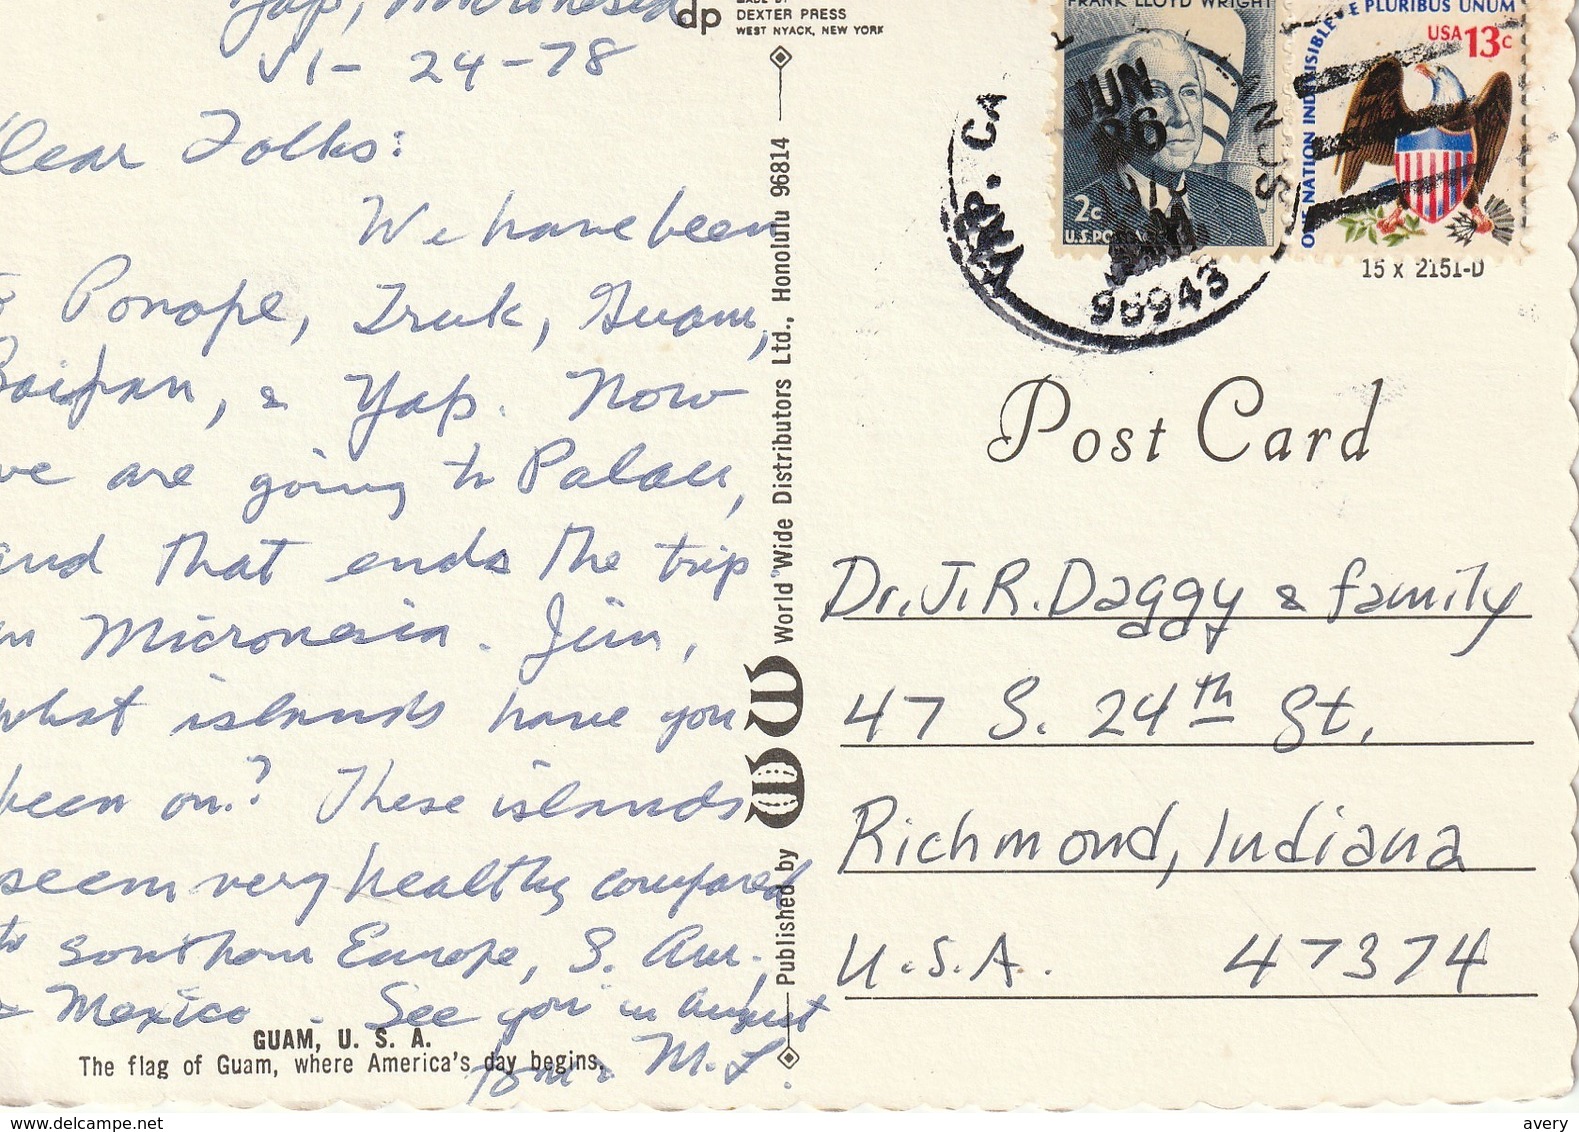 Yap, Micronesia
VI- 24-78
Dear Folks:
We have been
to Ponape, Truk, Guam,
Saipan, & Yap. Now
we are going to Palau,
and that ends the trip
in Micronesia. Jim,
what islands have you
been on? These islands
seem very healthy compared
to southern Europe, S. Am.,
& Mexico. See you in August
Tom & M.L.
GUAM, U. S. A.
The flag of Guam, where America's day begins.
dp
MADE BY
DEXTER PRESS
WEST NYACK, NEW YORK
Published by WW World Wide Distributors Ltd., Honolulu 96814
FRANK LLOYD WRIGHT
2c
U.S. POSTAGE
E PLURIBUS UNUM
USA 13c
ONE NATION INDIVISIBLE
YAP. CA
JUN
26
96943
15 x 2151-D
Post Card
Dr. J. R. Daggy & family
47 S. 24th St.
Richmond, Indiana
U.S.A. 47374
www.delcampe.net
avery